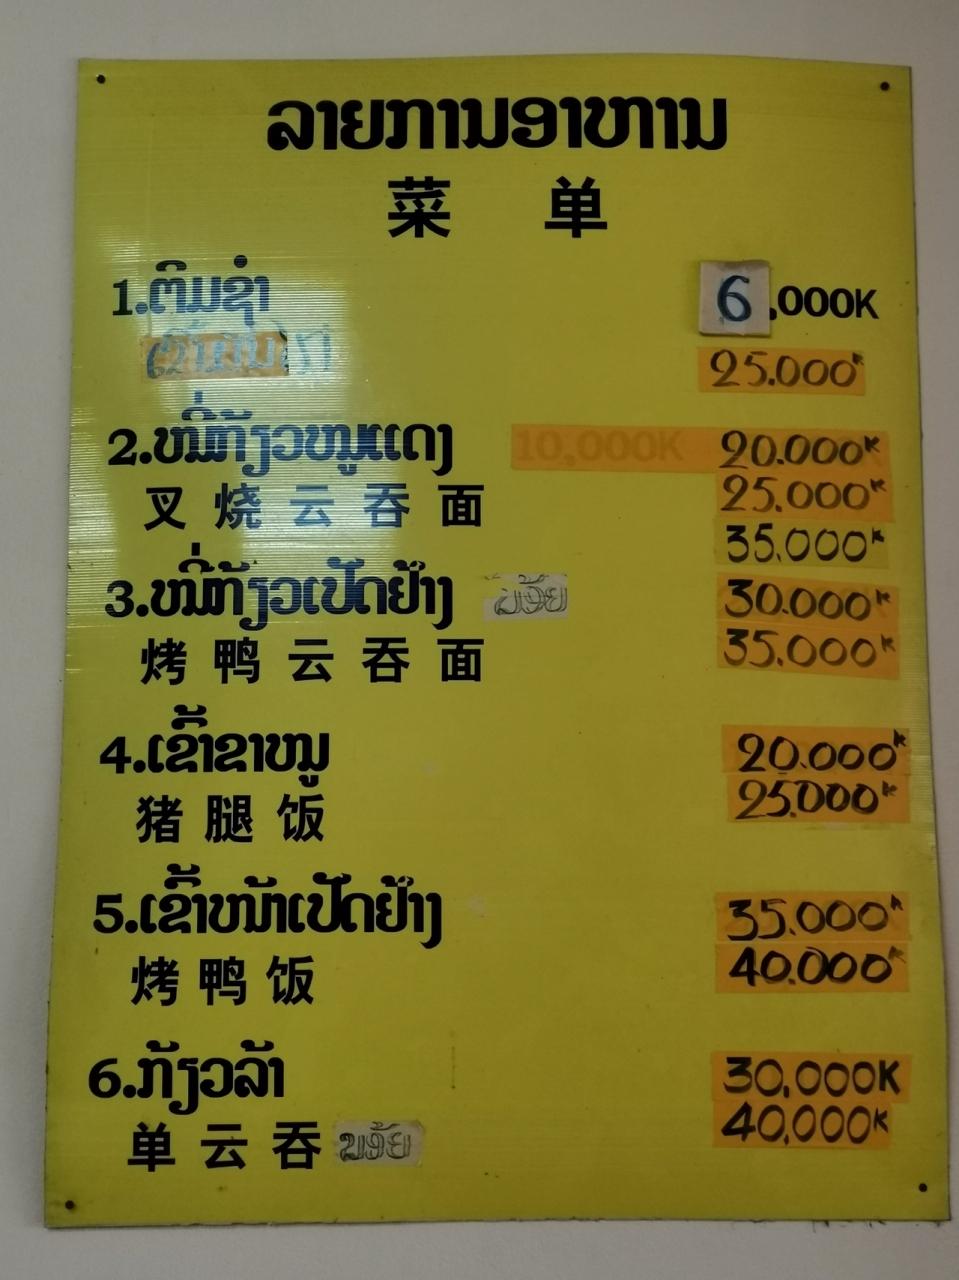 ລາຍການອາຫານ
菜 单
1.ຕິມຊຳ 6,000K
25.000K
2.ໝີ່ກ້ຽວໝູແດງ 10,000K 20.000K
叉烧云吞面 25.000K
35.000K
3.ໝີ່ກ້ຽວເປັດຢ້າງ 30.000K
烤鸭云吞面 35.000K
4.ເຂົ້າຂາໝູ 20.000K
猪腿饭 25.000K
5.ເຂົ້າໜ້າເປັດຢ້າງ 35.000K
烤鸭饭 40.000K
6.ກ້ຽວລ້າ 30,000K
单云吞 40,000K